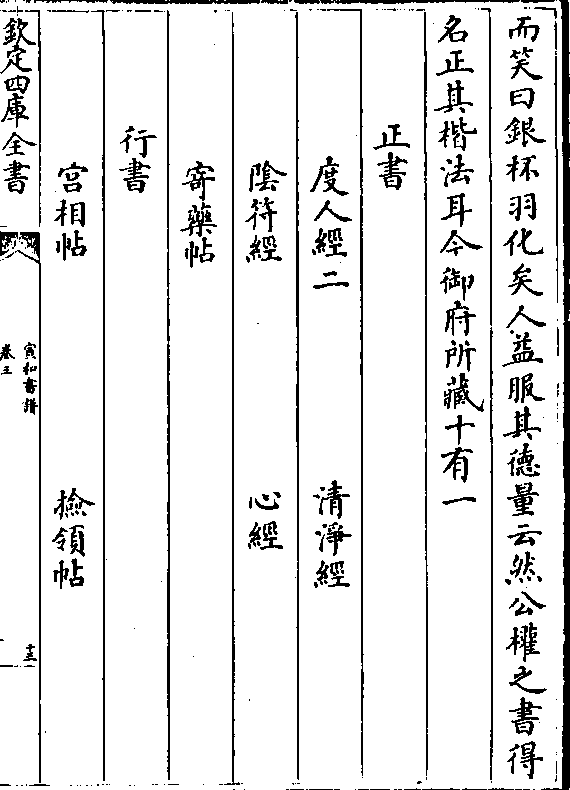 而笑曰銀杯羽化矣人益服其德量云然公權之書得
名正其楷法耳今御府所藏十有一
正書
度人經二 清淨經
陰符經 心經
寄藥帖
行書
宫相帖 撿領帖
欽定四庫全書
宣和書譜
卷三
十三